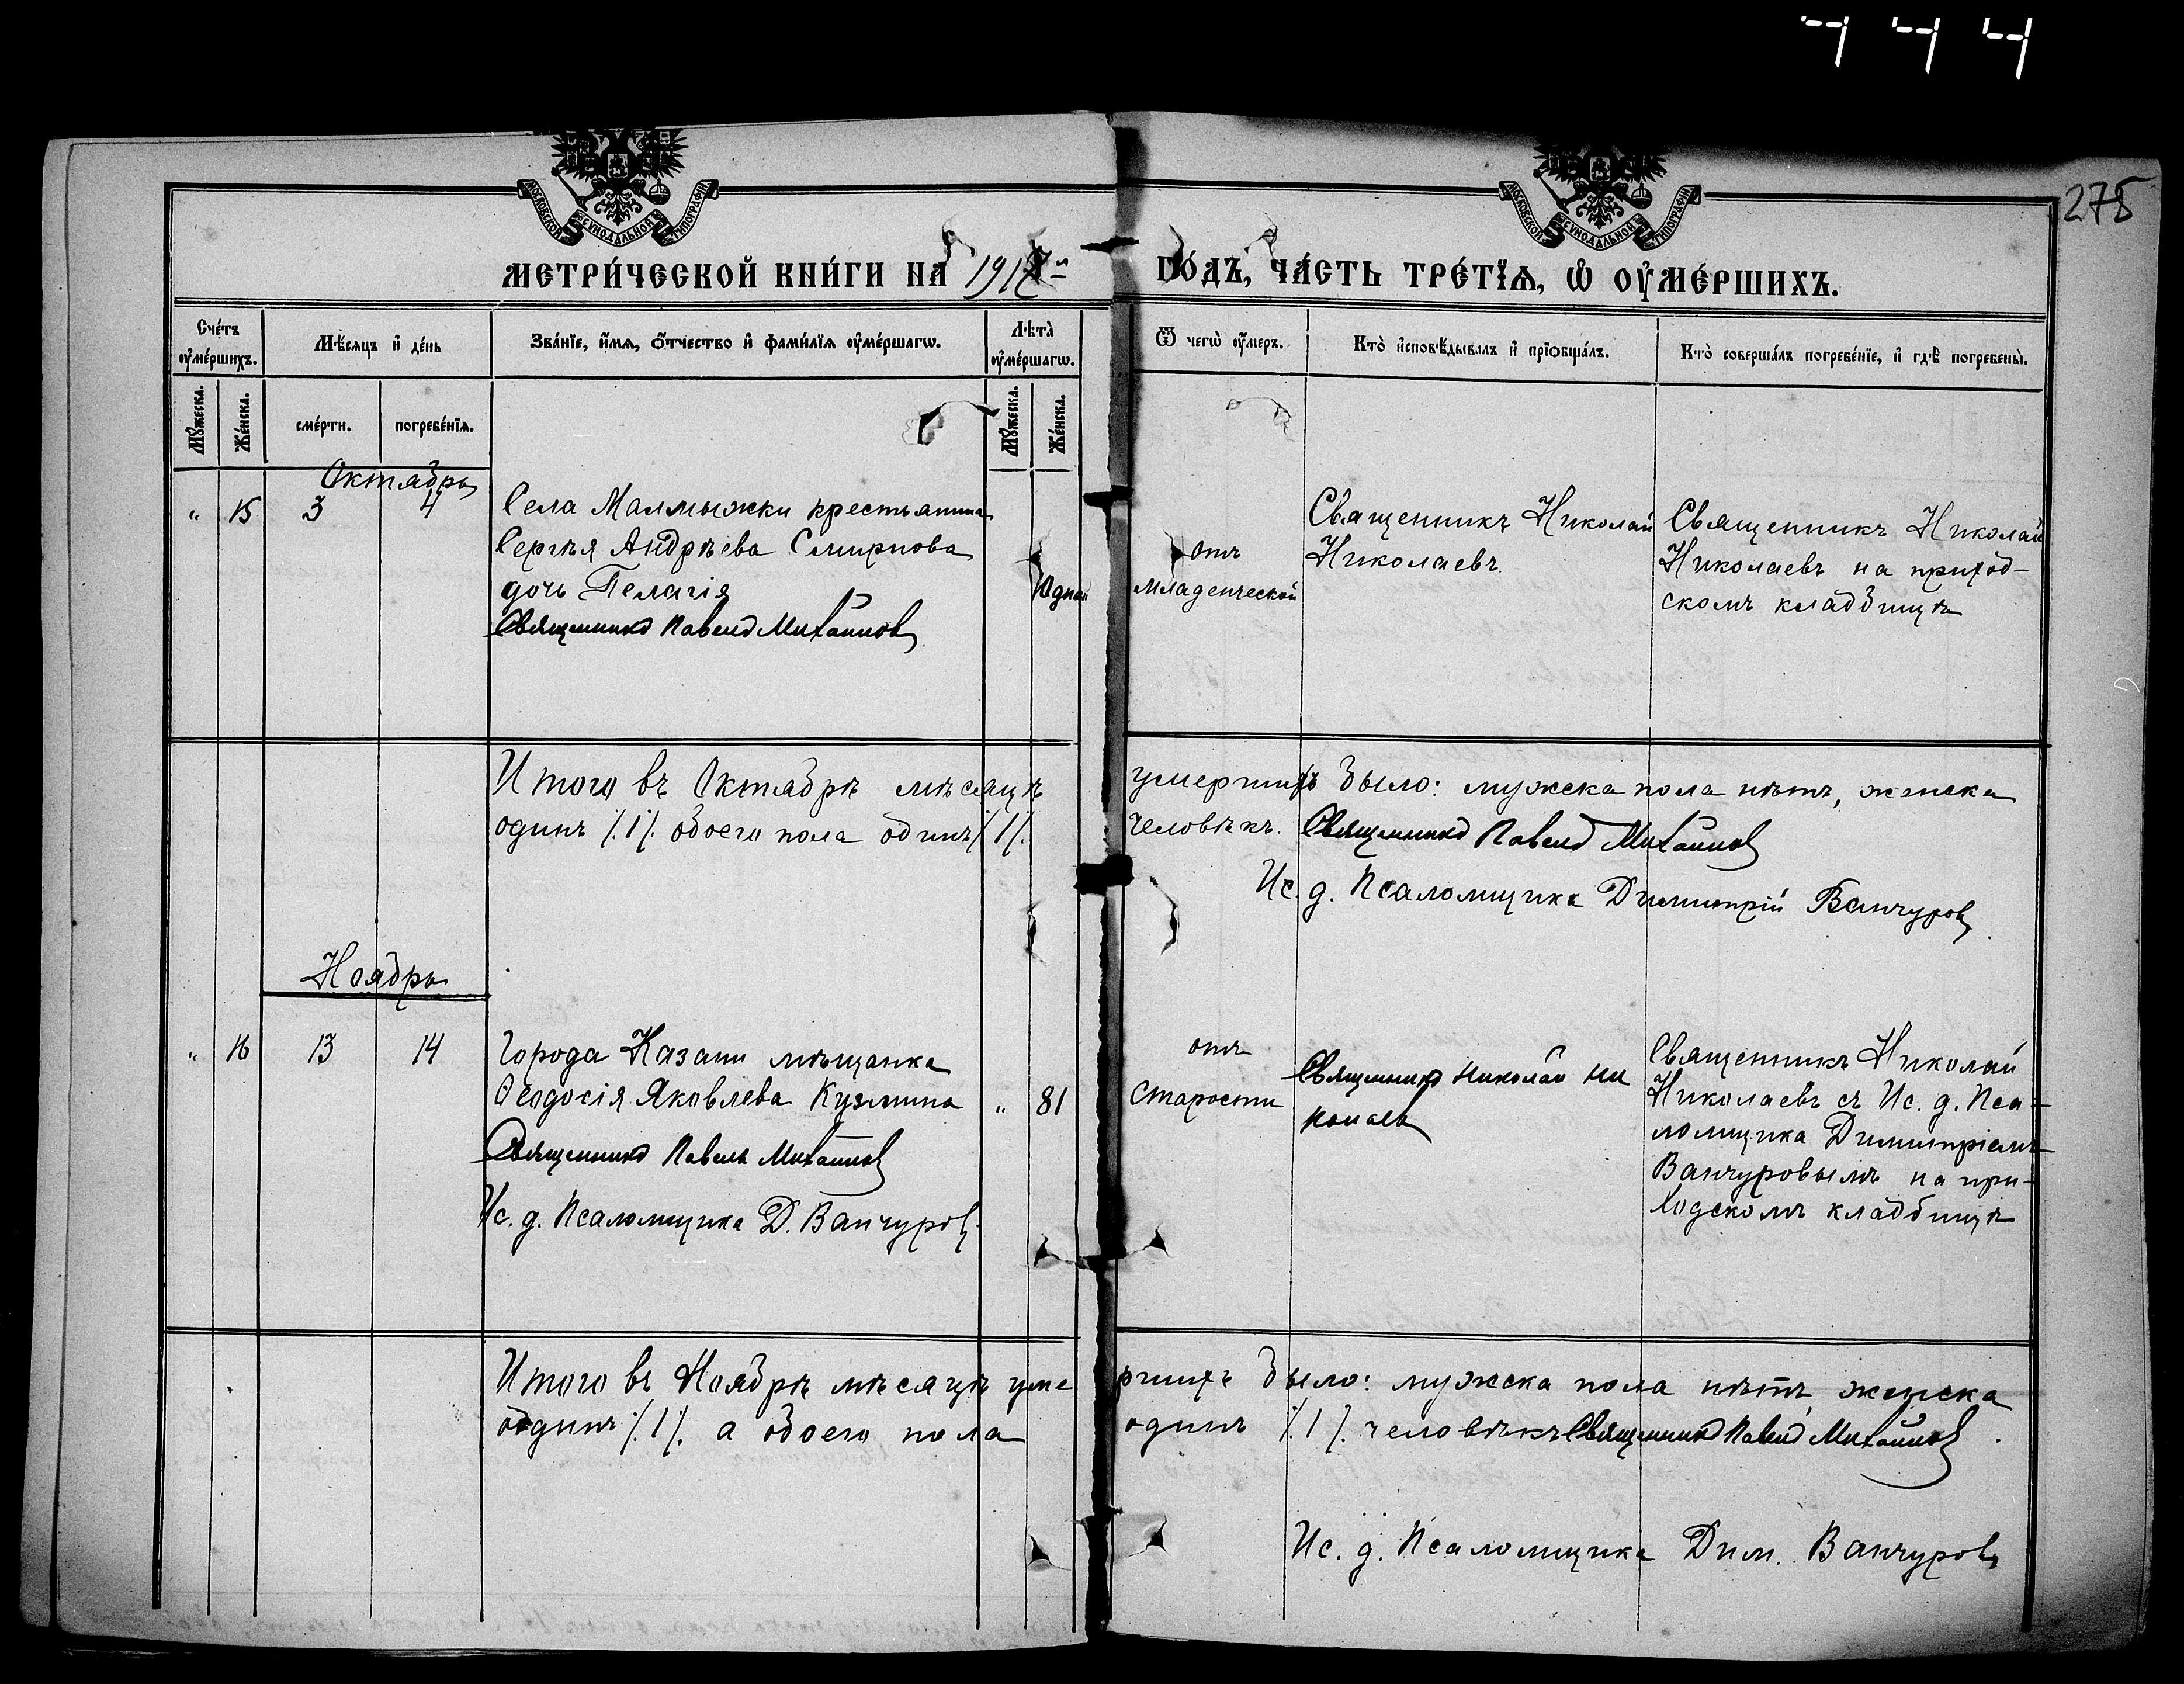 444
275
МОСКОВСКОЙ СѴНОДАЛЬНОЙ ТИПОГРАФІИ
МОСКОВСКОЙ СѴНОДАЛЬНОЙ ТИПОГРАФІИ
МЕТРИ́ЧЕСКОЙ КНИ́ГИ НА 1917й ГО́ДЪ, ЧА́СТЬ ТРЕ́ТЇѦ, Ѡ҆ ОУ҆МЕ́РШИХЪ.
Сче́тъ оу҆ме́ршихъ.
Мѣ́сяцъ и҆ де́нь
Зва́нїе, и҆́мѧ, ѻ҆́тчество и҆ фами́лїѧ оу҆ме́ршагѡ.
Лѣта̀ оу҆ме́ршагѡ.
Ѿ чегѡ̀ оу҆́меръ.
Кто̀ и҆сповѣ́дывалъ и҆ прїѡбща́лъ.
Кто̀ соверша́лъ погребе́нїе, и҆ гдѣ̀ погребены̀.
Мꙋ́жеска.
Же́нска.
сме́рти.
погребе́нїѧ.
Мꙋ́жеска.
Же́нска.
Октябрь
„ 15 3 4
Села Малмыжки крестьянина
Сергѣя Андрѣева Смирнова
дочь Пелагія
Священникъ Павелъ Михайловъ
10 дней
отъ
младенческой
Священникъ Николай
Николаевъ.
Священникъ Николай
Николаевъ на приход-
скомъ кладбищѣ
Итого въ Октябрѣ мѣсяцѣ умершихъ было: мужска пола нѣтъ, женска
одинъ /.1/. обоего пола одинъ /.1/. человѣкъ. Священникъ Павелъ Михайловъ
Ис. д. Псаломщика Димитрій Ванчуровъ
Ноябрь
„ 16 13 14
Города Казани мѣщанка
Ѳеодосія Яковлева Кузмина
Священникъ Павелъ Михайловъ
Ис. д. Псаломщика Д. Ванчуровъ
„ 81
отъ
старости
Священникъ Николай Ни
колаевъ
Священникъ Николай
Николаевъ съ Ис. д. Пса-
ломщика Димитріемъ
Ванчуровымъ на при-
ходскомъ кладбищѣ
Итого въ Ноябрѣ мѣсяцѣ умершихъ было: мужска пола нѣтъ, женска
одинъ /.1/. а обоего пола одинъ /.1/. человѣкъ Священникъ Павелъ Михайловъ
Ис. д. Псаломщика Дим. Ванчуровъ